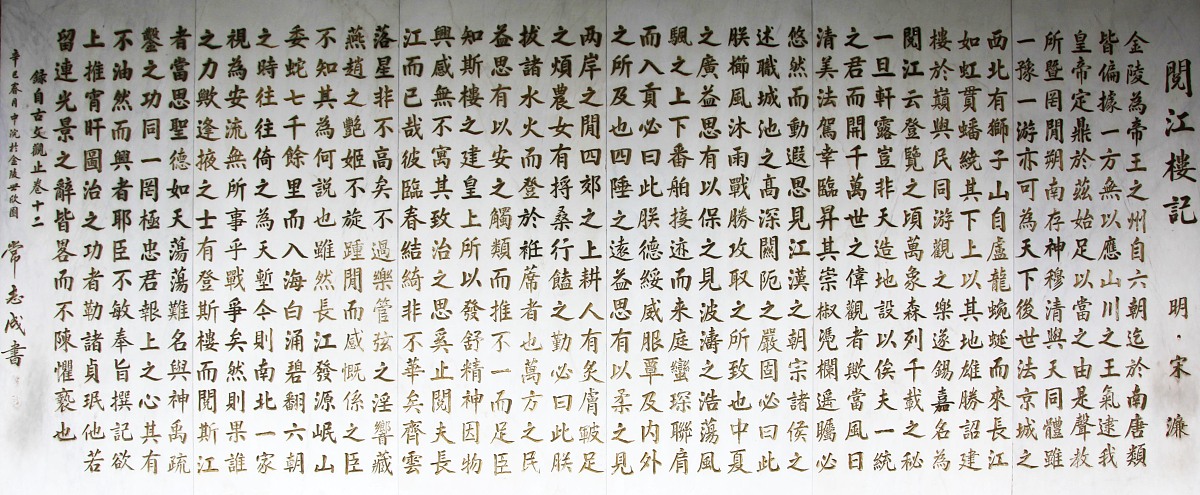 閱江樓記
明·宋濂
金陵為帝王之州自六朝迄於南唐類
皆偏據一方無以應山川之王氣逮我
皇帝定鼎於茲始足以當之由是聲教
所暨罔閒朔南存神穆清與天同體雖
一豫一游亦可為天下後世法京城之
西北有獅子山自盧龍蜿蜒而來長江
如虹貫蟠繞其下上以其地雄勝詔建
樓於巔與民同游觀之樂遂錫嘉名為
閱江云登覽之頃萬象森列千載之秘
一旦軒露豈非天造地設以俟夫一統
之君而開千萬世之偉觀者歟當風日
清美法駕幸臨昇其崇椒憑欄遙矚必
悠然而動遐思見江漢之朝宗諸侯之
述職城池之高深關阨之嚴固必曰此
朕櫛風沐雨戰勝攻取之所致也中夏
之廣益思有以保之見波濤之浩蕩風
颿之上下番舶接迹而來庭蠻琛聯肩
而入貢必曰此朕德綏威服覃及內外
之所及也四陲之遠益思有以柔之見
兩岸之閒四郊之上耕人有炙膚皸足
之煩農女有捋桑行饁之勤必曰此朕
拔諸水火而登於衽席者也萬方之民
益思有以安之觸類而推不一而足臣
知斯樓之建皇上所以發舒精神因物
興感無不寓其致治之思奚止閱夫長
江而已哉彼臨春結綺非不華矣齊雲
落星非不高矣不過樂管弦之淫響藏
燕趙之艷姬不旋踵閒而感慨係之臣
不知其為何說也雖然長江發源岷山
委蛇七千餘里而入海白涌碧翻六朝
之時往往倚之為天塹今則南北一家
視為安流無所事乎戰爭矣然則果誰
之力歟逢掖之士有登斯樓而閱斯江
者當思聖德如天蕩蕩難名與神禹疏
鑿之功同一罔極忠君報上之心其有
不油然而興者耶臣不敏奉旨撰記欲
上推宵旰圖治之功者勒諸貞珉他若
留連光景之辭皆畧而不陳懼褻也
錄自古文觀止卷十二
辛巳春月中院於金陵
常志成書